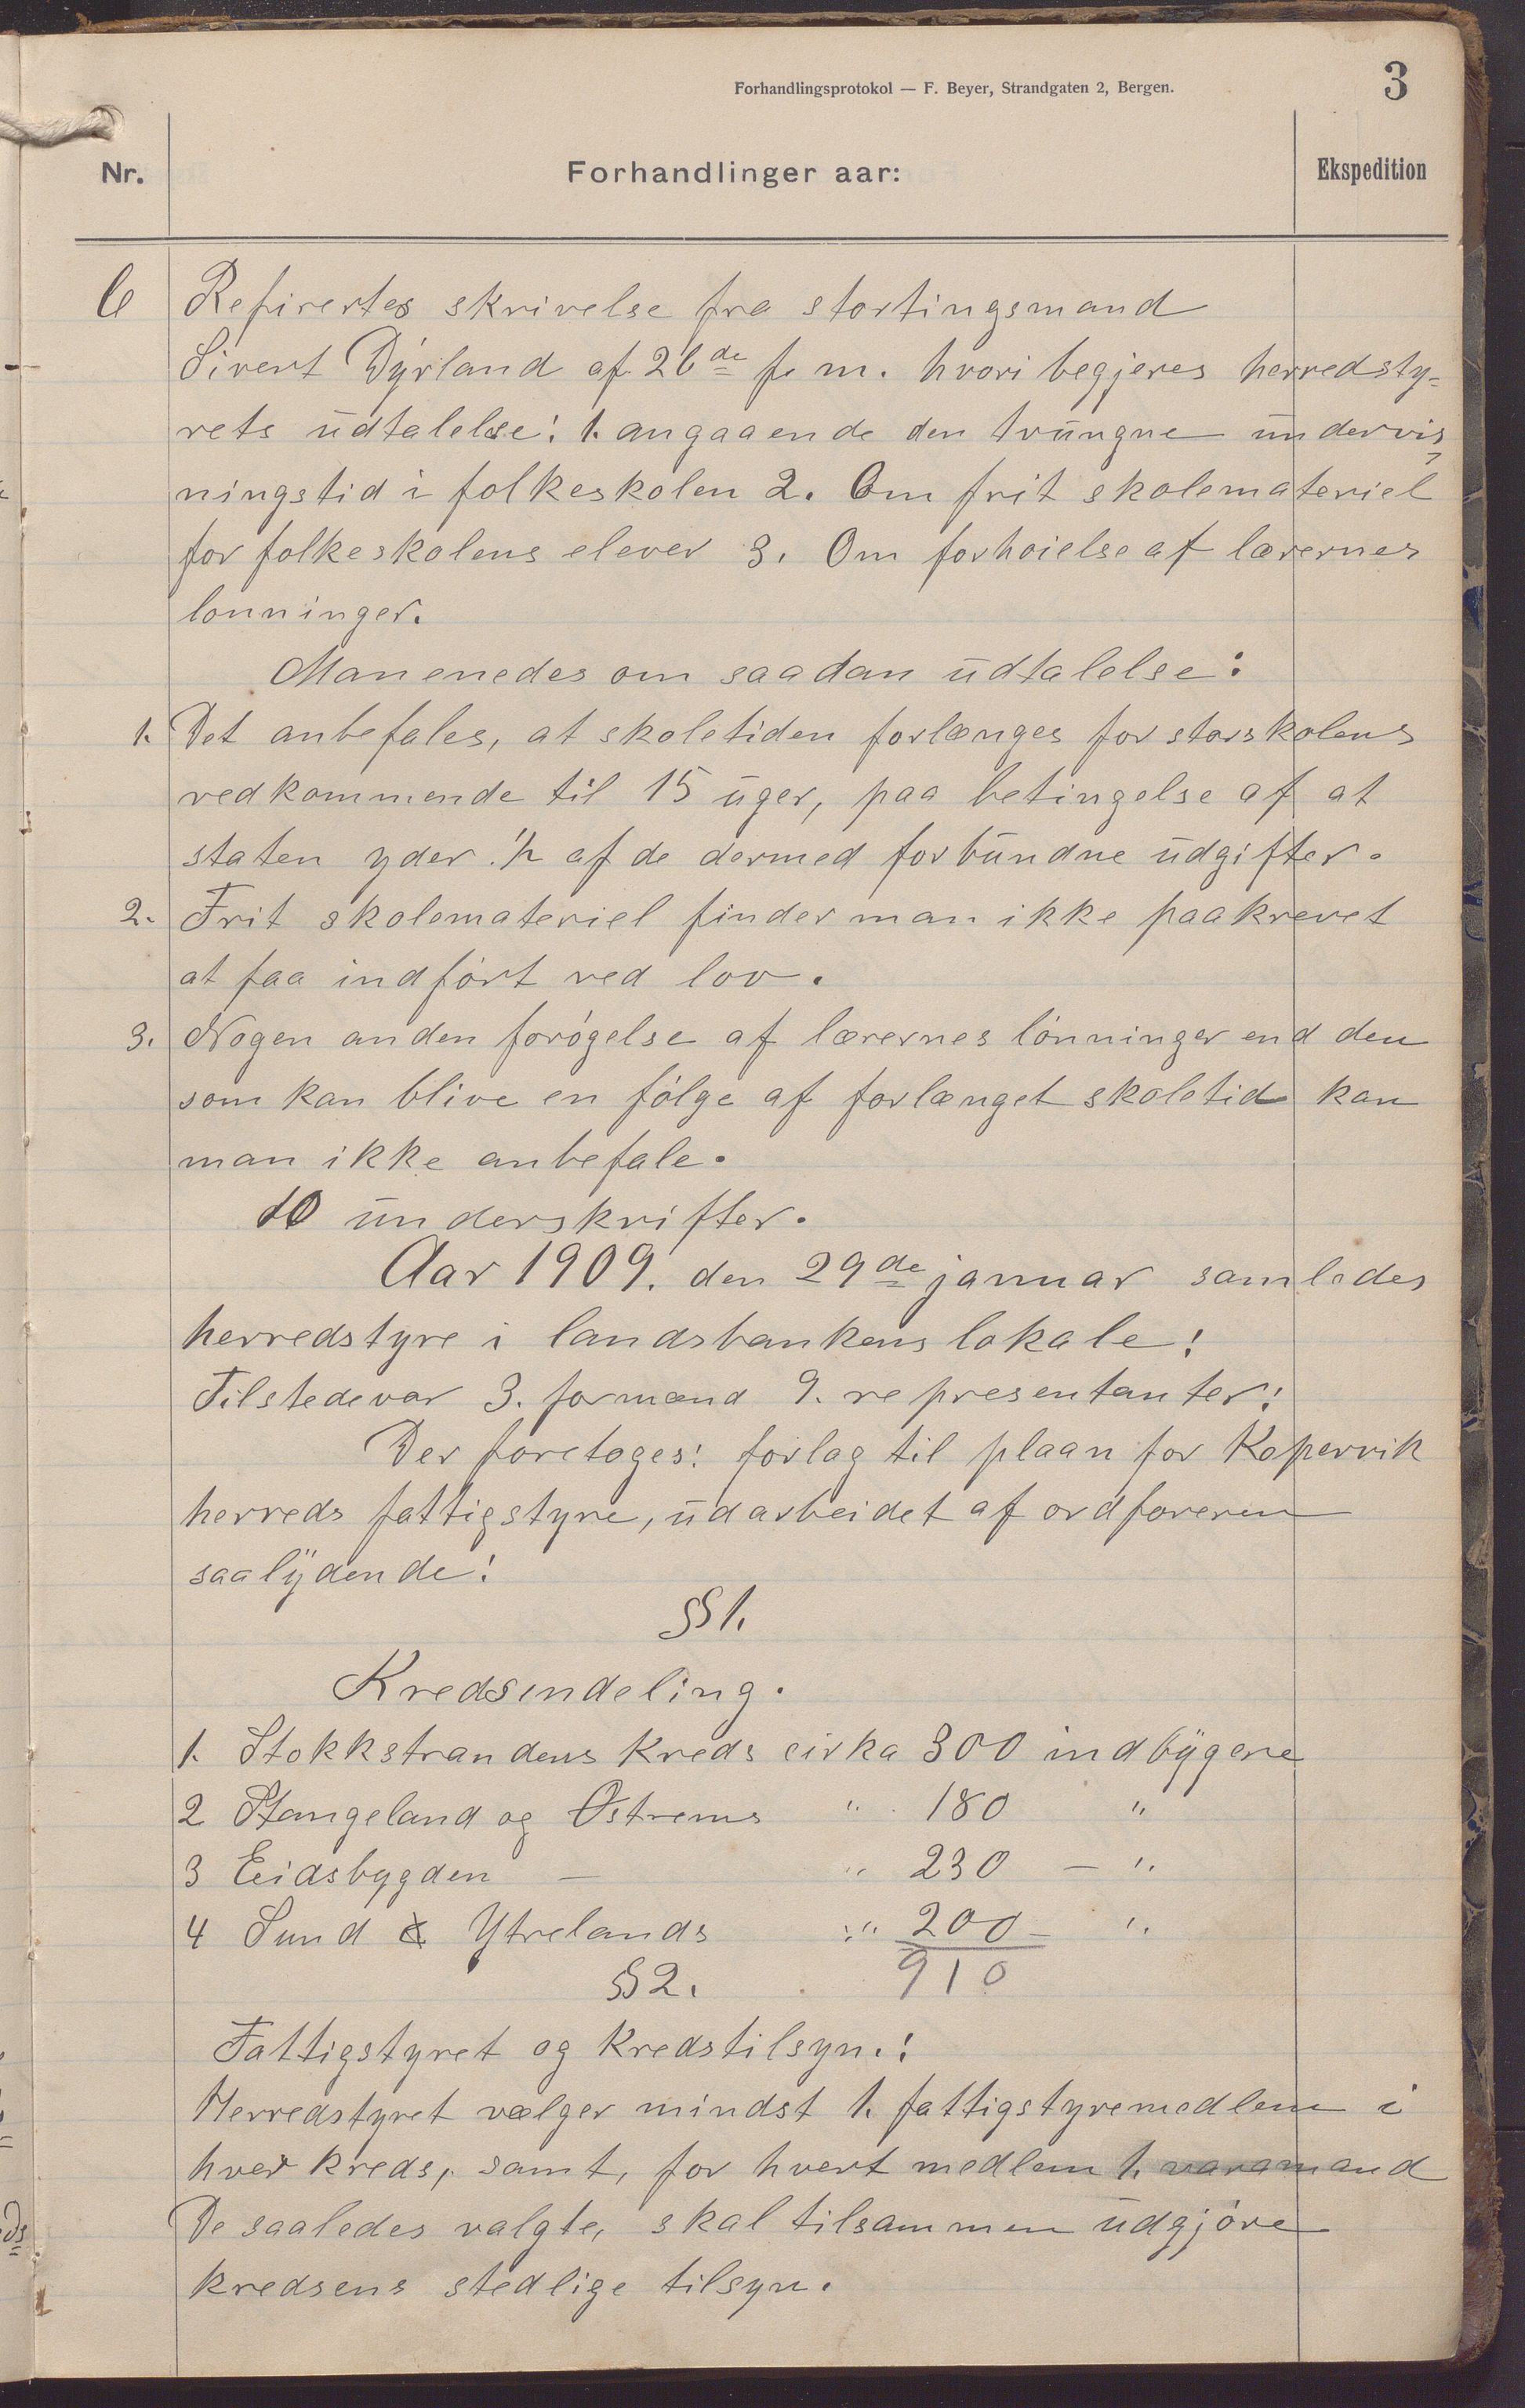 Forhandlingsprotokol — F. Beyer, Strandgaten 2, Bergen.
3
Nr. Forhandlinger aar: Ekspedition
6 Refirertes skrivelse fra stortingsmand
Sivert Dyrland af 26de f. m. hvori begjeres herredsty-
rets udtalelse: 1. angaaende den tvungne undervis
ningstid i folkeskolen 2. Om frit skolemateriel
for folkeskolens elever 3. Om forhoielse af lærernes
lonninger.
Man enedes om saadan udtalelse:
1. Det anbefales, at skoletiden forlænges for storskolens
vedkommende til 15 uger, paa betingelse af at
staten yder 1/2 af de dermed forbundne udgifter.
2. Frit skolemateriel finder man ikke paakrevet
at faa indført ved lov.
3. Nogen anden forøgelse af lærernes lønninger end den
som kan blive en følge af forlænget skoletid kan
man ikke anbefale.
10 underskrifter.
Aar 1909. den 29de januar samledes
herredstyre i landsbankens lokale:
Tilstede var 3. formænd 9. representanter:
Der foretoges: forlag til plaan for Kopervik
herreds fattigstyre, udarbeidet af ordføreren
saalydende:
§ 1.
Kredsindeling.
1. Stokkstrandens kreds cirka 300 indbygere
2 Stangeland og Østrems " 180 "
3 Eidsbygden — " 230 — "
4 Sund & Ytrelands " 200 — "
910
§ 2.
Fattigstyret og kredstilsyn.:
Herredstyret vælger mindst 1. fattigstyremedlem i
hver kreds, samt, for hvert medlem 1. varamand
De saaledes valgte, skal tilsammen udgjøre
kredsens stedlige tilsyn.